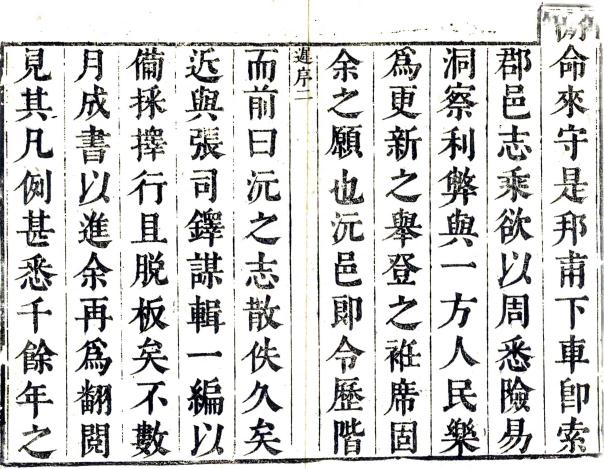 命來守是邦甫下車卽索
郡邑志乘欲以周悉險易
洞察利弊與一方人民樂
爲更新之舉登之袵席固
余之願也沅邑即令歷階
遲序二
而前曰沅之志散佚久矣
近與張司鐸謀輯一編以
備採擇行且脫板矣不數
月成書以進余再爲翻閱
見其凡例甚悉千餘年之